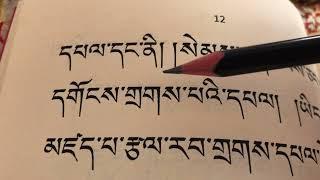 12
དཔལ་དང་ནི། །སེམས
དགོངས་གྲགས་པའི་དཔལ། །ཡིད
མཛད་པ་རྩལ་རབ་གྲགས་དཔལ